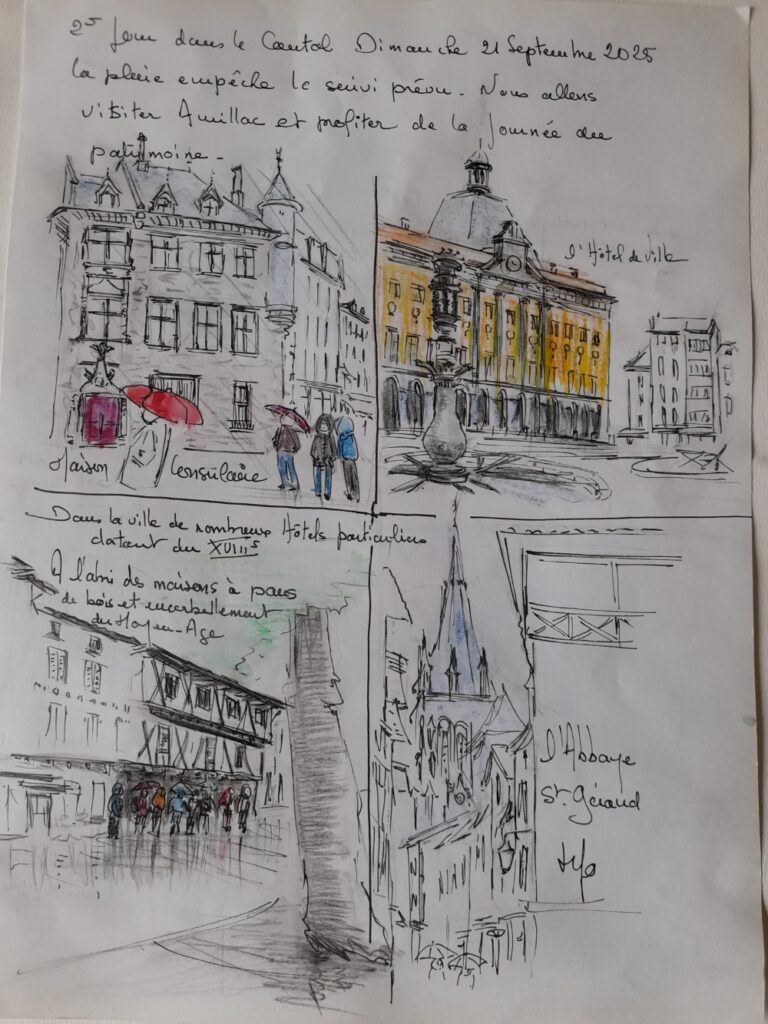 2e Jour dans le Cantal Dimanche 21 Septembre 2025
la pluie empêche le suivi prévu. Nous allons
visiter Aurillac et profiter de la Journée du
patrimoine.
l'Hôtel de Ville
Maison Consulaire
Dans la ville de nombreux Hôtels particuliers
datant du XVIIIs
A l'abri des maisons à pans
de bois et encorbellement
du Moyen-Age
l'Abbaye
St. Géraud